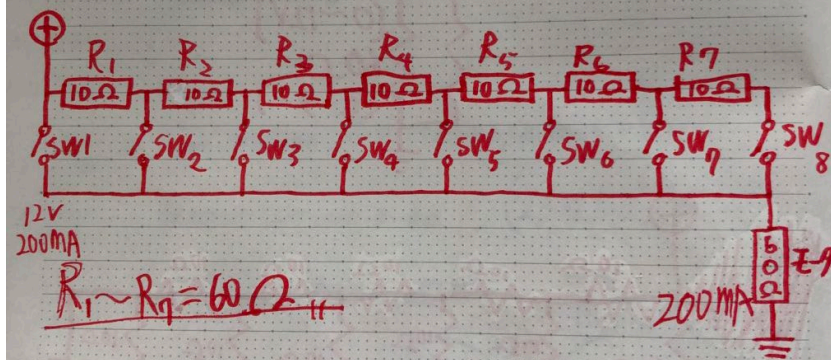 ⊕
R1 R2 R3 R4 R5 R6 R7
10Ω 10Ω 10Ω 10Ω 10Ω 10Ω 10Ω
SW1 SW2 SW3 SW4 SW5 SW6 SW7 SW8
12V
200mA
R1~R7=60Ω
60Ω
200mA